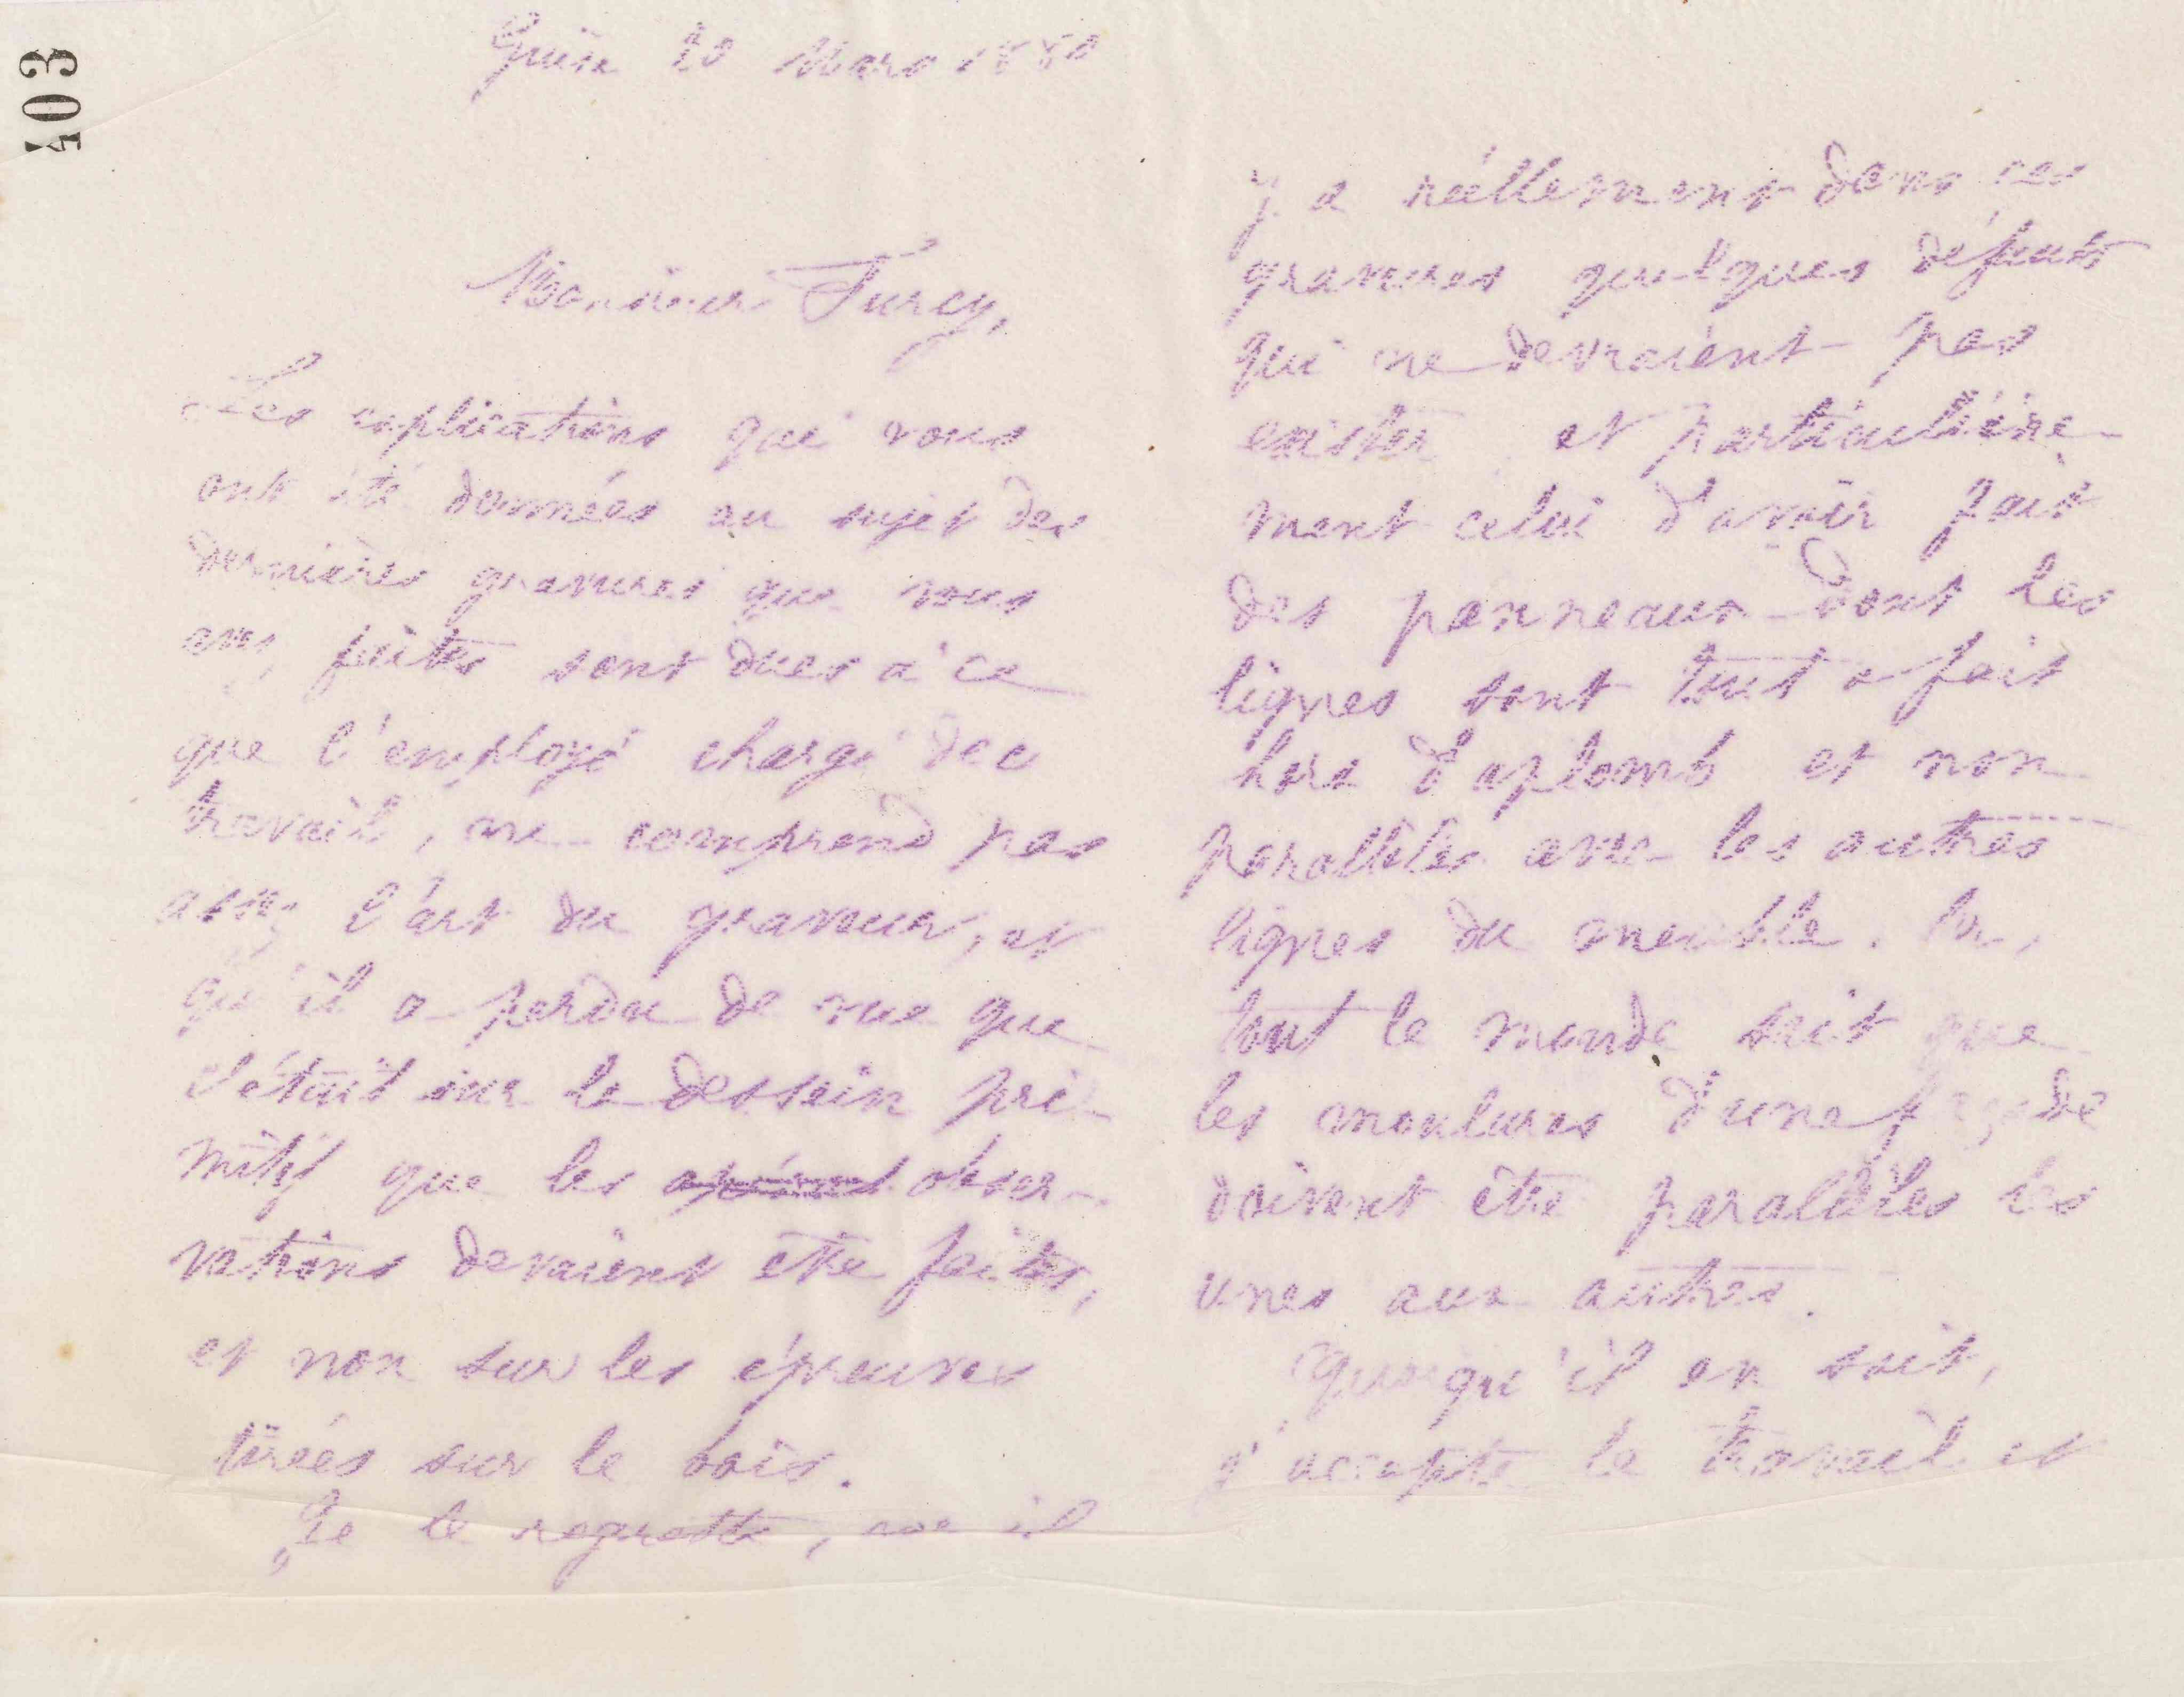 403
Guise 20 Mars 1880
Monsieur Turcy,
Les explications qui vous
ont été données au sujet des
dernières gravures que vous
avez faites sont dues à ce
que l'employé chargé de ce
travail, ne comprend pas
assez l'art du graveur, et
qu'il a perdu de vue que
c'était sur le dessein pri-
mitif que les obser-
vations devaient être faites,
et non sur les épreuves
tirées sur le bois.
Je le regrette, car il
y a réellement dans ces
gravures quelques défauts
qui ne devraient pas
exister et particulière-
ment celui d'avoir fait
des panneaux dont les
lignes sont tout a fait
hors d'aplomb et non
parallèles avec les autres
lignes du meuble. Or,
tout le monde sait que
les moulures d'une façade
doivent être parallèles les
unes aux autres.
Quoiqu'il en soit,
j'accepte le travail et